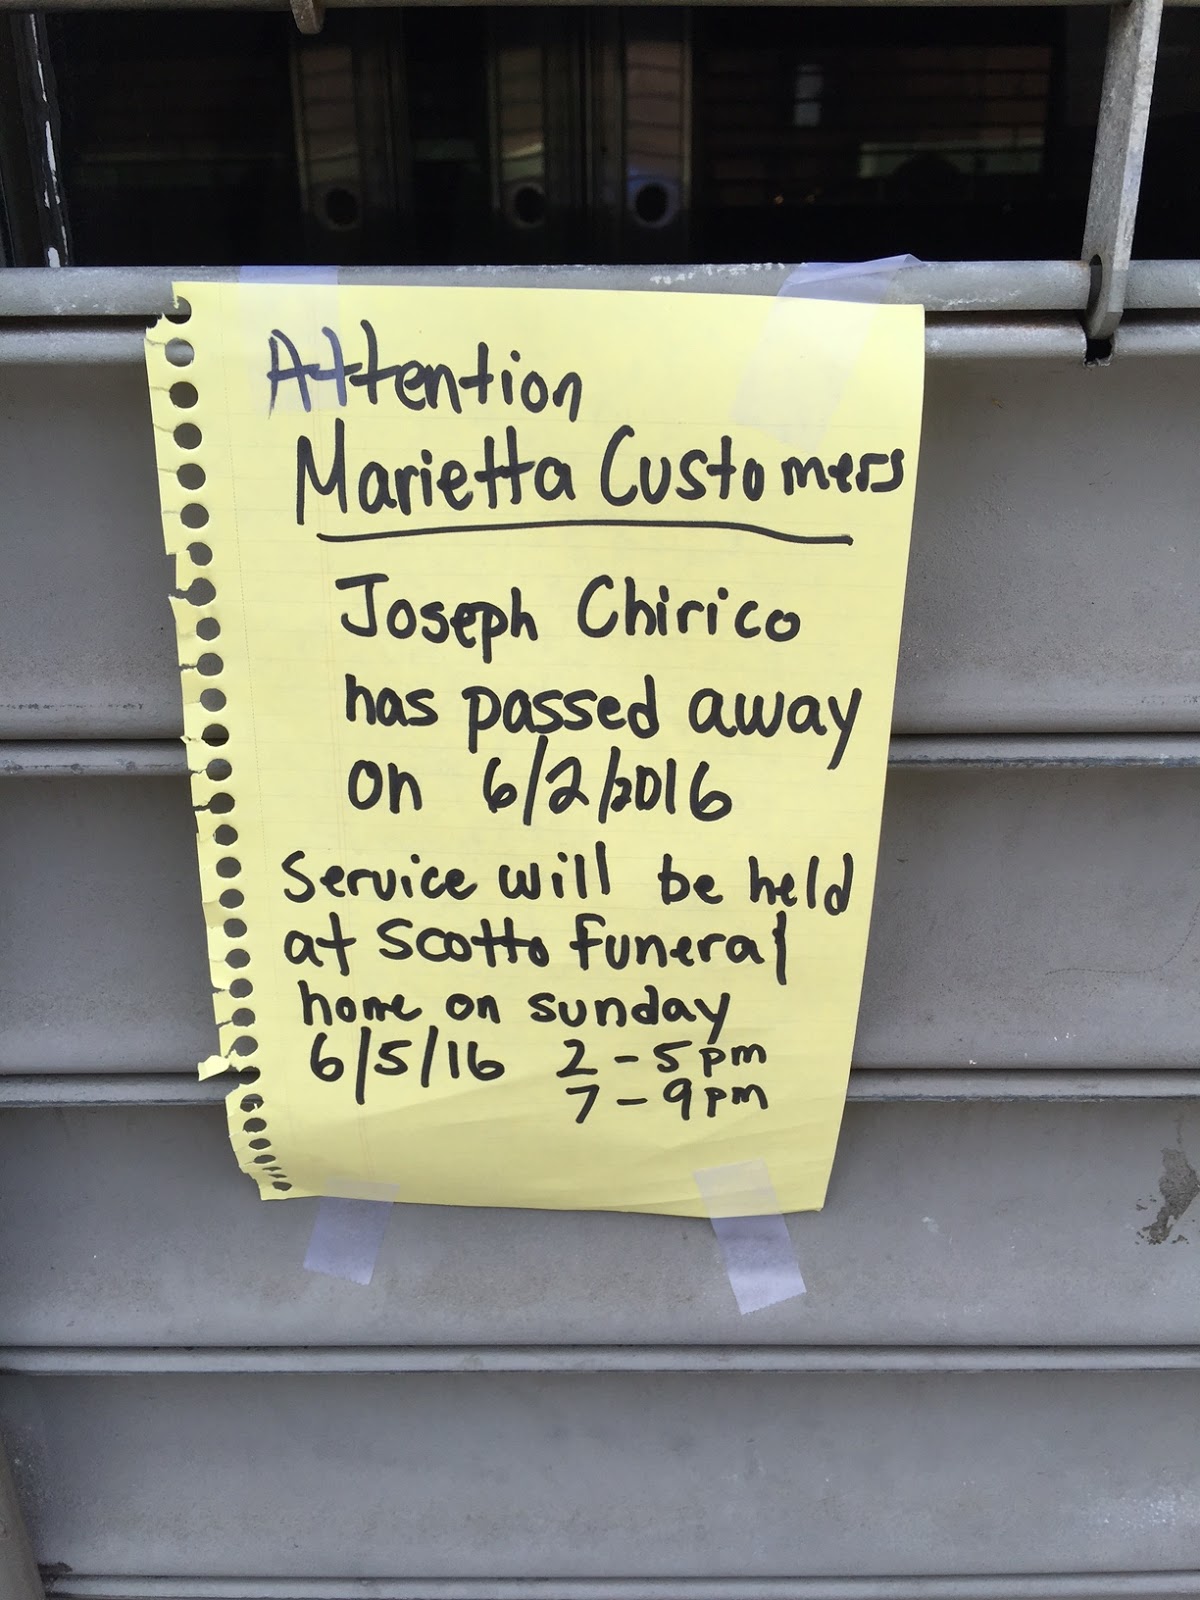 Attention
Marietta Customers
Joseph Chirico
has passed away
on 6/2/2016
Service will be held
at Scotto funeral
home on sunday
6/5/16 2-5pm
7-9pm